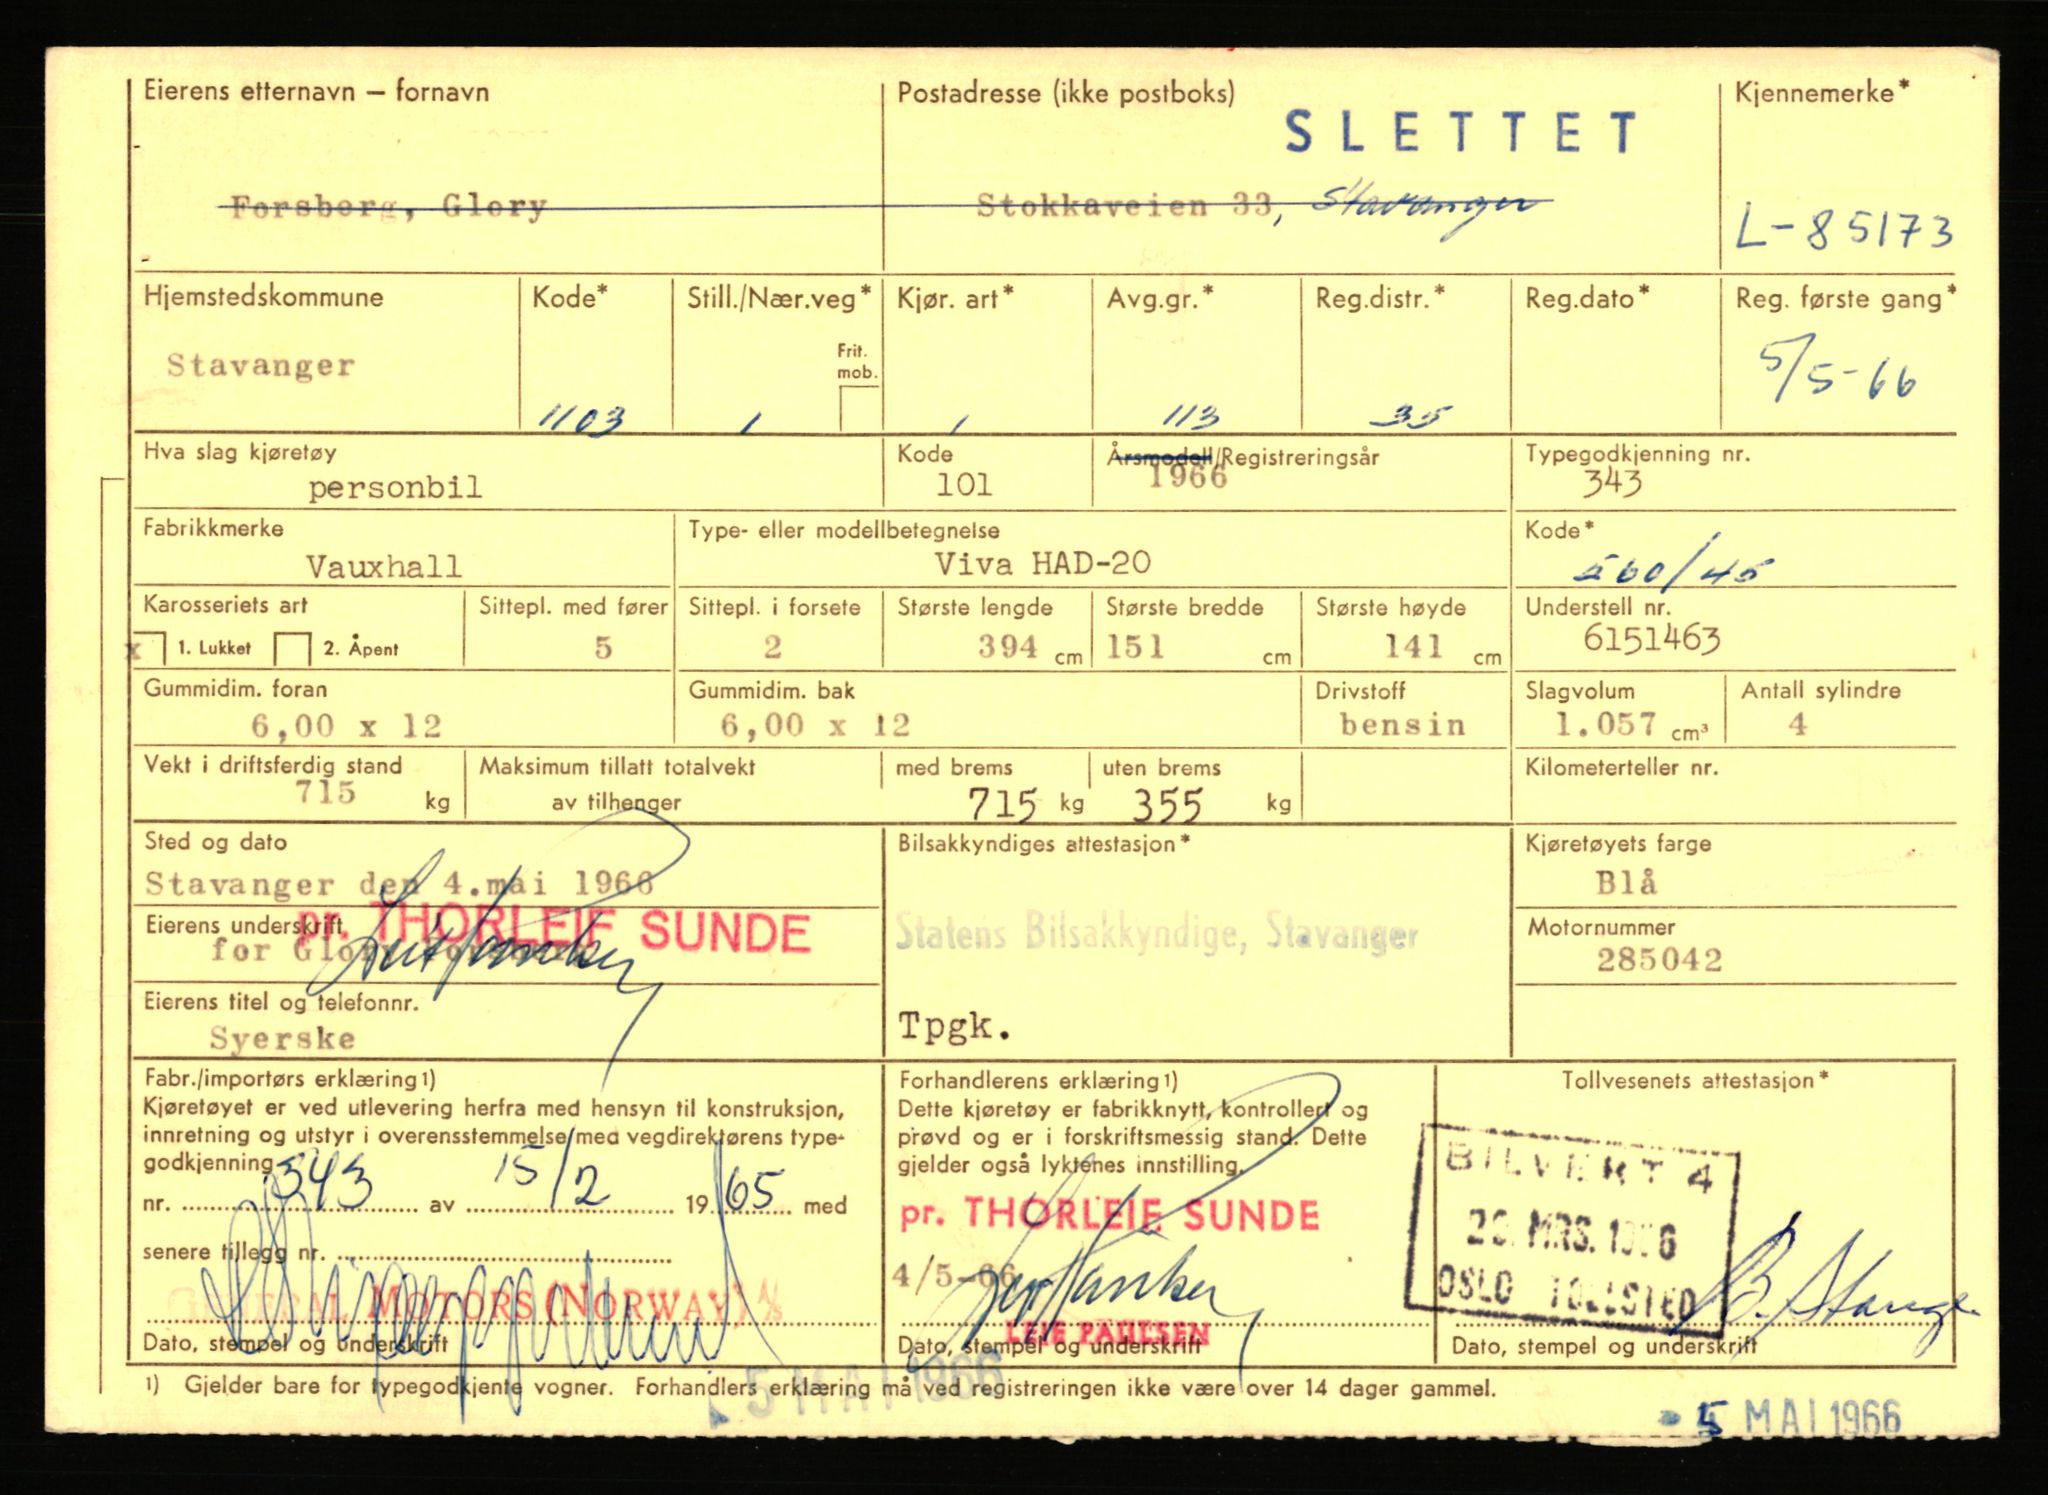 Eierens etternavn — fornavn
Postadresse (ikke postboks)
Kjennemerke*
SLETTET
Forsberg, Glory
Stokkaveien 33, Stavanger
L-85173
Hjemstedskommune
Kode*
Still./Nær.veg*
Kjør. art*
Avg.gr.*
Reg.distr.*
Reg.dato*
Reg. første gang*
Stavanger
Frit. mob.
5/5-66
1103
1
1
113
35
Hva slag kjøretøy
Kode
Årsmodell/Registreringsår
Typegodkjenning nr.
personbil
101
1966
343
Fabrikkmerke
Type- eller modellbetegnelse
Kode*
Vauxhall
Viva HAD-20
560/45
Karosseriets art
Sittepl. med fører
Sittepl. i forsete
Største lengde
Største bredde
Største høyde
Understell nr.
x 1. Lukket 2. Åpent
5
2
394 cm
151 cm
141 cm
6151463
Gummidim. foran
Gummidim. bak
Drivstoff
Slagvolum
Antall sylindre
6,00 x 12
6,00 x 12
bensin
1.057 cm³
4
Vekt i driftsferdig stand
Maksimum tillatt totalvekt
med brems
uten brems
Kilometerteller nr.
715 kg
av tilhenger
715 kg
355 kg
Sted og dato
Bilsakkyndiges attestasjon*
Kjøretøyets farge
Stavanger den 4.mai 1966
Blå
pr. THORLEIF SUNDE
Eierens underskrift
Statens Bilsakkyndige, Stavanger
Motornummer
for Glory
285042
Eierens titel og telefonnr.
Syerske
Tpgk.
Fabr./importørs erklæring 1)
Kjøretøyet er ved utlevering herfra med hensyn til konstruksjon,
innretning og utstyr i overensstemmelse med vegdirektørens type-
godkjenning
nr. 343 av 15/2 1965 med
senere tillegg nr.
GENERAL MOTORS (NORWAY) A/S
Dato, stempel og underskrift
Forhandlerens erklæring 1)
Dette kjøretøy er fabrikknytt, kontrollert og
prøvd og er i forskriftsmessig stand. Dette
gjelder også lyktenes innstilling.
pr. THORLEIF SUNDE
4/5-66
LEIF PAULSEN
Dato, stempel og underskrift
Tollvesenets attestasjon*
BILVERT 4
MRS. 1966
OSLO TOLLSTED
B. Stange
Dato, stempel og underskrift
1) Gjelder bare for typegodkjente vogner. Forhandlers erklæring må ved registreringen ikke være over 14 dager gammel.
5 MAI 1966
5 MAI 1966